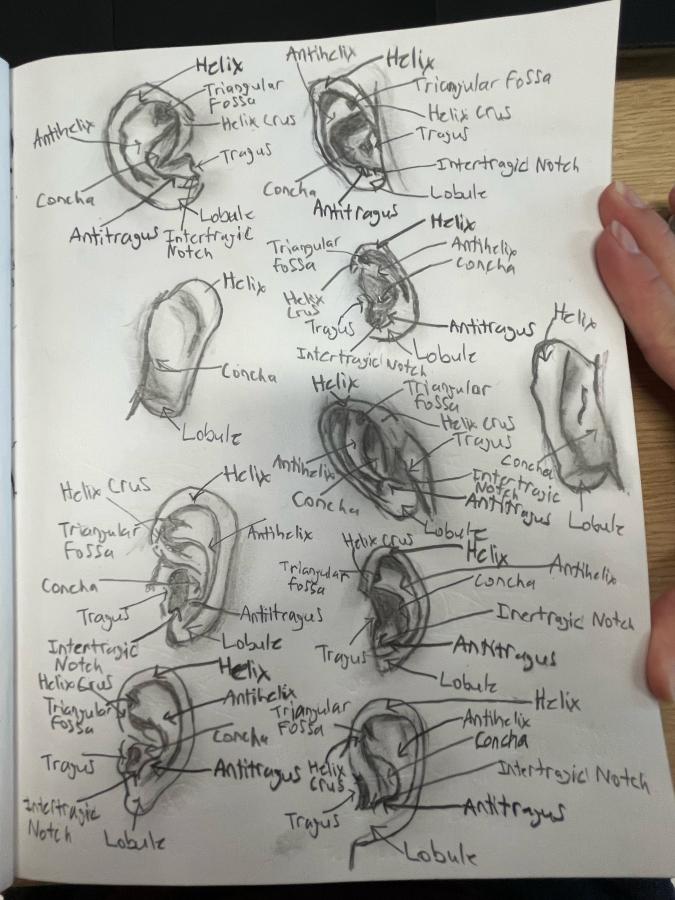 Helix
Triangular
Fossa
Antihelix
Helix Crus
Tragus
Concha
Lobule
Antitragus
Intertragic
Notch
Antihelix
Helix
Triangular Fossa
Helix Crus
Tragus
Intertragic Notch
Concha
Lobule
Antitragus
Helix
Triangular
Fossa
Antihelix
Concha
Helix
Crus
Tragus
Antitragus
Intertragic Notch
Lobule
Helix
Concha
Lobule
Helix
Concha
Lobule
Helix
Triangular
Fossa
Helix Crus
Tragus
Antihelix
Intertragic
Notch
Concha
Antitragus
Lobule
Helix Crus
Helix
Triangular
Fossa
Antihelix
Concha
Tragus
Antitragus
Intertragic
Notch
Lobule
Helix Crus
Helix
Triangular
Fossa
Antihelix
Concha
Inertragic Notch
Tragus
Antitragus
Lobule
Helix
Helix Crus
Triangular
Fossa
Antihelix
Concha
Tragus
Antitragus
Intertragic
Notch
Lobule
Helix
Triangular
Fossa
Antihelix
Concha
Helix
Crus
Intertragic Notch
Antitragus
Tragus
Lobule